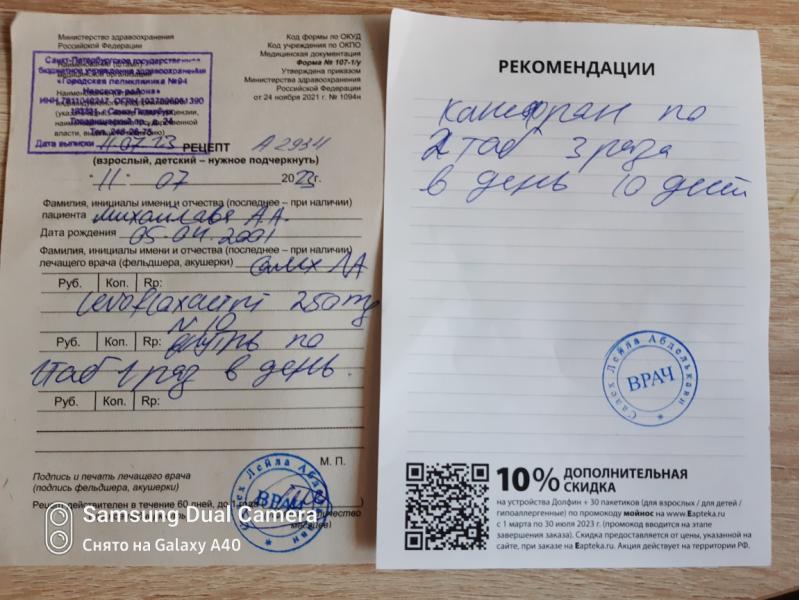 Министерство здравоохранения
Российской Федерации
Код формы по ОКУД
Код учреждения по ОКПО
Медицинская документация
Форма № 107-1/у
Утверждена приказом
Министерства здравоохранения
Российской Федерации
от 24 ноября 2021 г. № 1094н
Санкт-Петербургское государственное
бюджетное учреждение здравоохранения
«Городская поликлиника №94
Невского района»
Тел. 248-26-75
Дата выписки 11.07 23
РЕЦЕПТ А2934
(взрослый, детский – нужное подчеркнуть)
"11" 07 2023 г.
Фамилия, инициалы имени и отчества (последнее – при наличии)
пациента А.А.
Дата рождения 05.04.2001
Фамилия, инициалы имени и отчества (последнее – при наличии)
лечащего врача (фельдшера, акушерки) ЛА
Руб. Коп. Rp:
Levofloxacini 250 mg
N 10
Руб. Коп. Rp: внутрь по
1 таб 1 раз в день.
Руб. Коп. Rp:
М. П.
Подпись и печать лечащего врача
(подпись фельдшера, акушерки)
Рецепт действителен в течение 60 дней, до 1 года
Лейла
ВРАЧ
Samsung Dual Camera
Снято на Galaxy A40
РЕКОМЕНДАЦИИ
Канефрон по
2 таб 3 раза
в день 10 дней
Салех Лейла
ВРАЧ
10% ДОПОЛНИТЕЛЬНАЯ
СКИДКА
на устройства Долфин + 30 пакетиков (для взрослых / для детей /
гипоаллергенные) по промокоду мойнос на www.Eapteka.ru
с 1 марта по 30 июля 2023 г. (промокод вводится на этапе
завершения заказа). Скидка предоставляется от цены, указанной на
сайте, при заказе на Eapteka.ru. Акция действует на территории РФ.